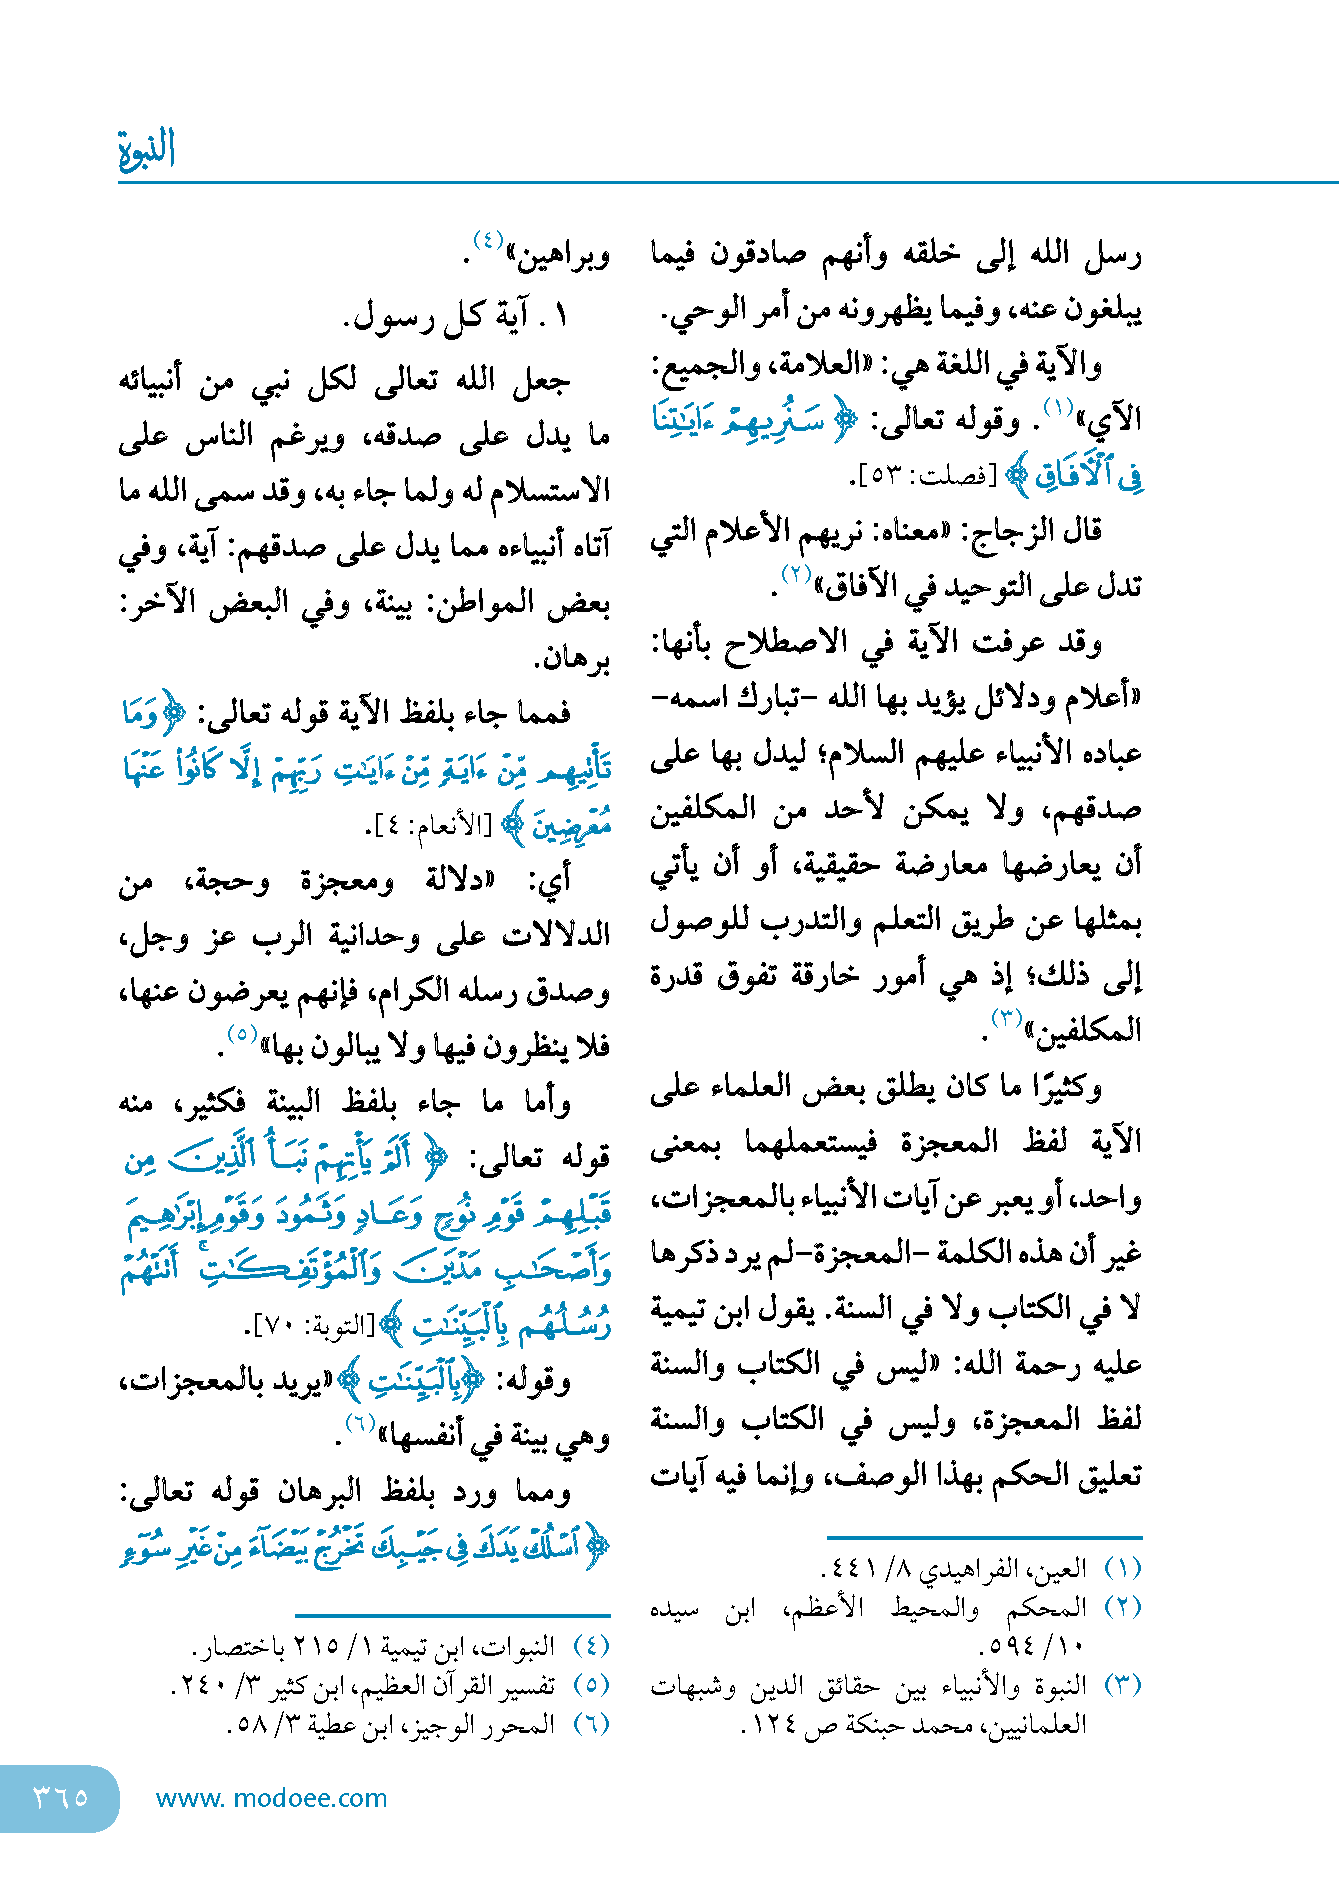 النبوة
رسل الله إلى خلقه وأنهم صادقون فيما
يبلغون عنه، وفيما يظهرونه من أمر الوحي.
والآية في اللغة هي: «العلامة، والجميع:
الآي»(١). وقوله تعالى: ﴿سَنُرِيهِمْ ءَايَٰتِنَا
فِي ٱلْأٓفَاقِ﴾ [فصلت: ٥٣].
قال الزجاج: «معناه: نريهم الأعلام التي
تدل على التوحيد في الآفاق»(٢).
وقد عرفت الآية في الاصطلاح بأنها:
«أعلام ودلائل يؤيد بها الله -تبارك اسمه-
عباده الأنبياء عليهم السلام؛ ليدل بها على
صدقهم، ولا يمكن لأحد من المكلفين
أن يعارضها معارضة حقيقية، أو أن يأتي
بمثلها عن طريق التعلم والتدرب للوصول
إلى ذلك؛ إذ هي أمور خارقة تفوق قدرة
المكلفين»(٣).
وكثيرًا ما كان يطلق بعض العلماء على
الآية لفظ المعجزة فيستعملهما بمعنى
واحد، أو يعبر عن آيات الأنبياء بالمعجزات،
غير أن هذه الكلمة -المعجزة-لم يرد ذكرها
لا في الكتاب ولا في السنة. يقول ابن تيمية
عليه رحمة الله: «ليس في الكتاب والسنة
لفظ المعجزة، وليس في الكتاب والسنة
تعليق الحكم بهذا الوصف، وإنما فيه آيات
(١) العين، الفراهيدي ٨/ ٤٤١.
(٢) المحكم والمحيط الأعظم، ابن سيده
١٠/ ٥٩٤.
(٣) النبوة والأنبياء بين حقائق الدين وشبهات
العلمانيين، محمد حبنكة ص ١٢٤.
وبراهين»(٤).
١. آية كل رسول.
جعل الله تعالى لكل نبي من أنبيائه
ما يدل على صدقه، ويرغم الناس على
الاستسلام له ولما جاء به، وقد سمى الله ما
آتاه أنبياءه مما يدل على صدقهم: آية، وفي
بعض المواطن: بينة، وفي البعض الآخر:
برهان.
فمما جاء بلفظ الآية قوله تعالى: ﴿وَمَا
تَأْتِيهِم مِّنْ ءَايَةٍ مِّنْ ءَايَٰتِ رَبِّهِمْ إِلَّا كَانُوا۟ عَنْهَا
مُعْرِضِينَ﴾ [الأنعام: ٤].
أي: «دلالة ومعجزة وحجة، من
الدلالات على وحدانية الرب عز وجل،
وصدق رسله الكرام، فإنهم يعرضون عنها،
فلا ينظرون فيها ولا يبالون بها»(٥).
وأما ما جاء بلفظ البينة فكثير، منه
قوله تعالى: ﴿أَلَمْ يَأْتِهِمْ نَبَأُ ٱلَّذِينَ مِن
قَبْلِهِمْ قَوْمِ نُوحٍ وَعَادٍ وَثَمُودَ وَقَوْمِ إِبْرَٰهِيمَ
وَأَصْحَٰبِ مَدْيَنَ وَٱلْمُؤْتَفِكَٰتِ ۚ أَتَتْهُمْ
رُسُلُهُم بِٱلْبَيِّنَٰتِ﴾ [التوبة: ٧٠].
وقوله: ﴿بِٱلْبَيِّنَٰتِ﴾ «يريد بالمعجزات،
وهي بينة في أنفسها»(٦).
ومما ورد بلفظ البرهان قوله تعالى:
﴿ٱسْلُكْ يَدَكَ فِي جَيْبِكَ تَخْرُجْ بَيْضَآءَ مِنْ غَيْرِ سُوٓءٍ
(٤) النبوات، ابن تيمية ١/ ٢١٥ باختصار.
(٥) تفسير القرآن العظيم، ابن كثير ٣/ ٢٤٠.
(٦) المحرر الوجيز، ابن عطية ٣/ ٥٨.
www. modoee.com
٣٦٥